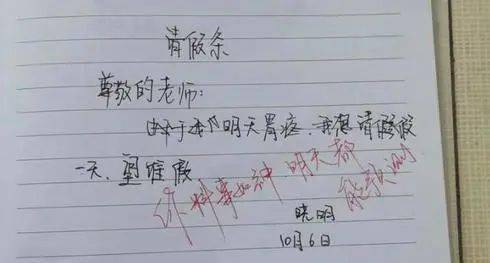 请假条
尊敬的老师:
由于我明天胃疼,我想请假假
一天,望准假
你料事如神 明天都
能预测
晓明
10月6日